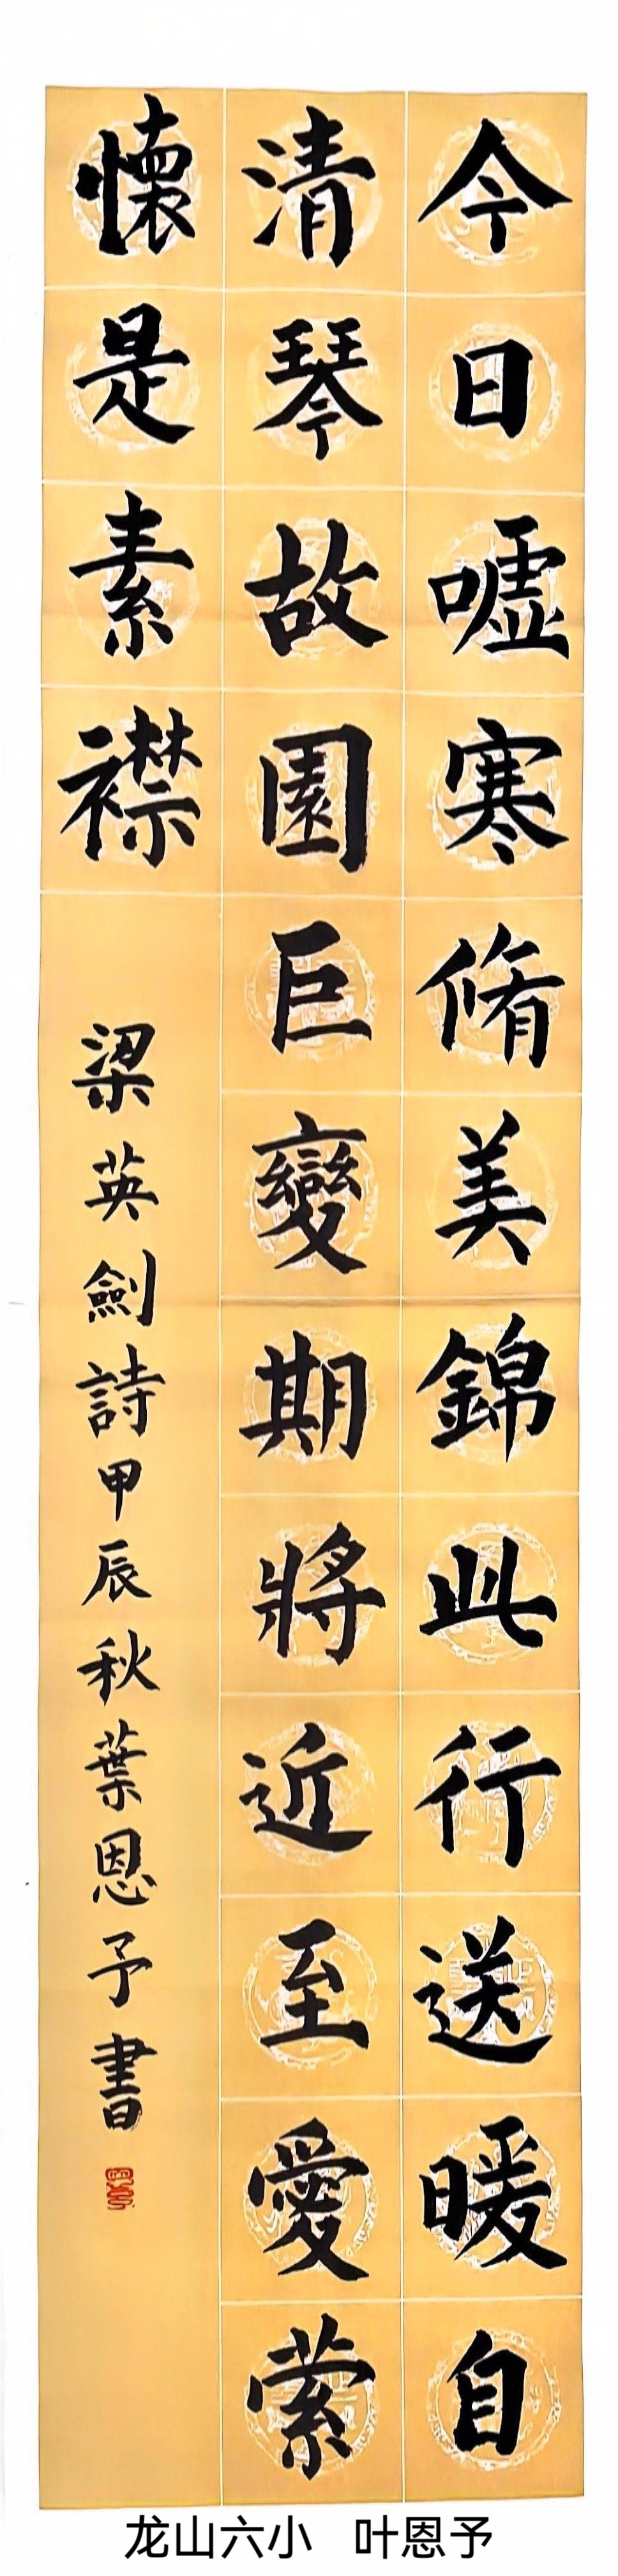 今日嘘寒脩美錦此行送暖自
清琴故園巨變期將近至愛縈
懷是素襟
梁英劍詩甲辰秋葉恩予書
龙山六小 叶恩予